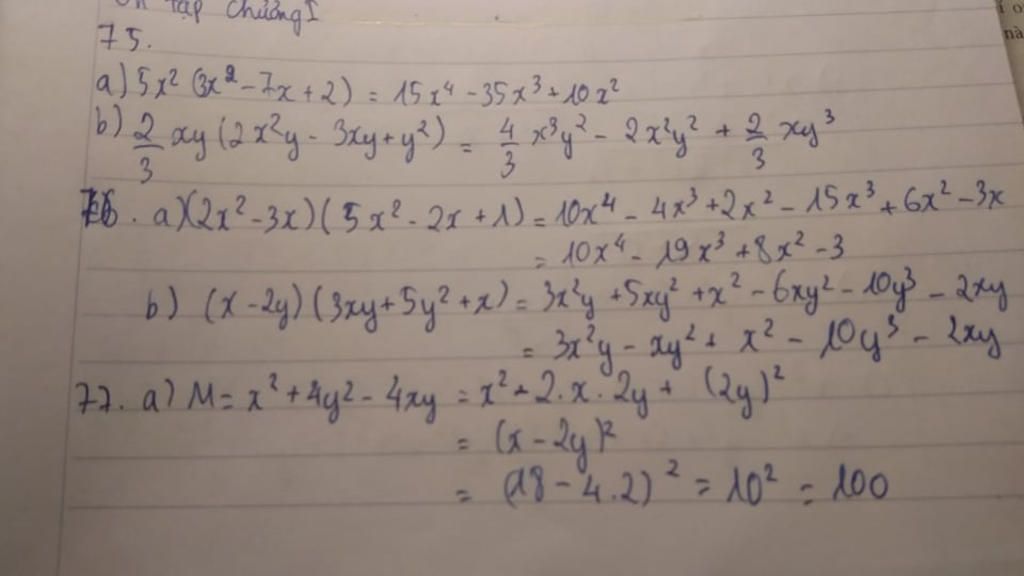 Ôn tập chương I
75.
a) 5x² (3x² - 7x + 2) = 15x⁴ - 35x³ + 10x²
b) 2/3 xy (2x²y - 3xy + y²) = 4/3 x³y² - 2x²y² + 2/3 xy³
76. a) (2x² - 3x) (5x² - 2x + 1) = 10x⁴ - 4x³ + 2x² - 15x³ + 6x² - 3x
= 10x⁴ - 19x³ + 8x² - 3
b) (x - 2y) (3xy + 5y² + x) = 3x²y + 5xy² + x² - 6xy² - 10y³ - 2xy
= 3x²y - xy² + x² - 10y³ - 2xy
77. a) M = x² + 4y² - 4xy = x² - 2.x.2y + (2y)²
= (x - 2y)²
= (18 - 4.2)² = 10² = 100